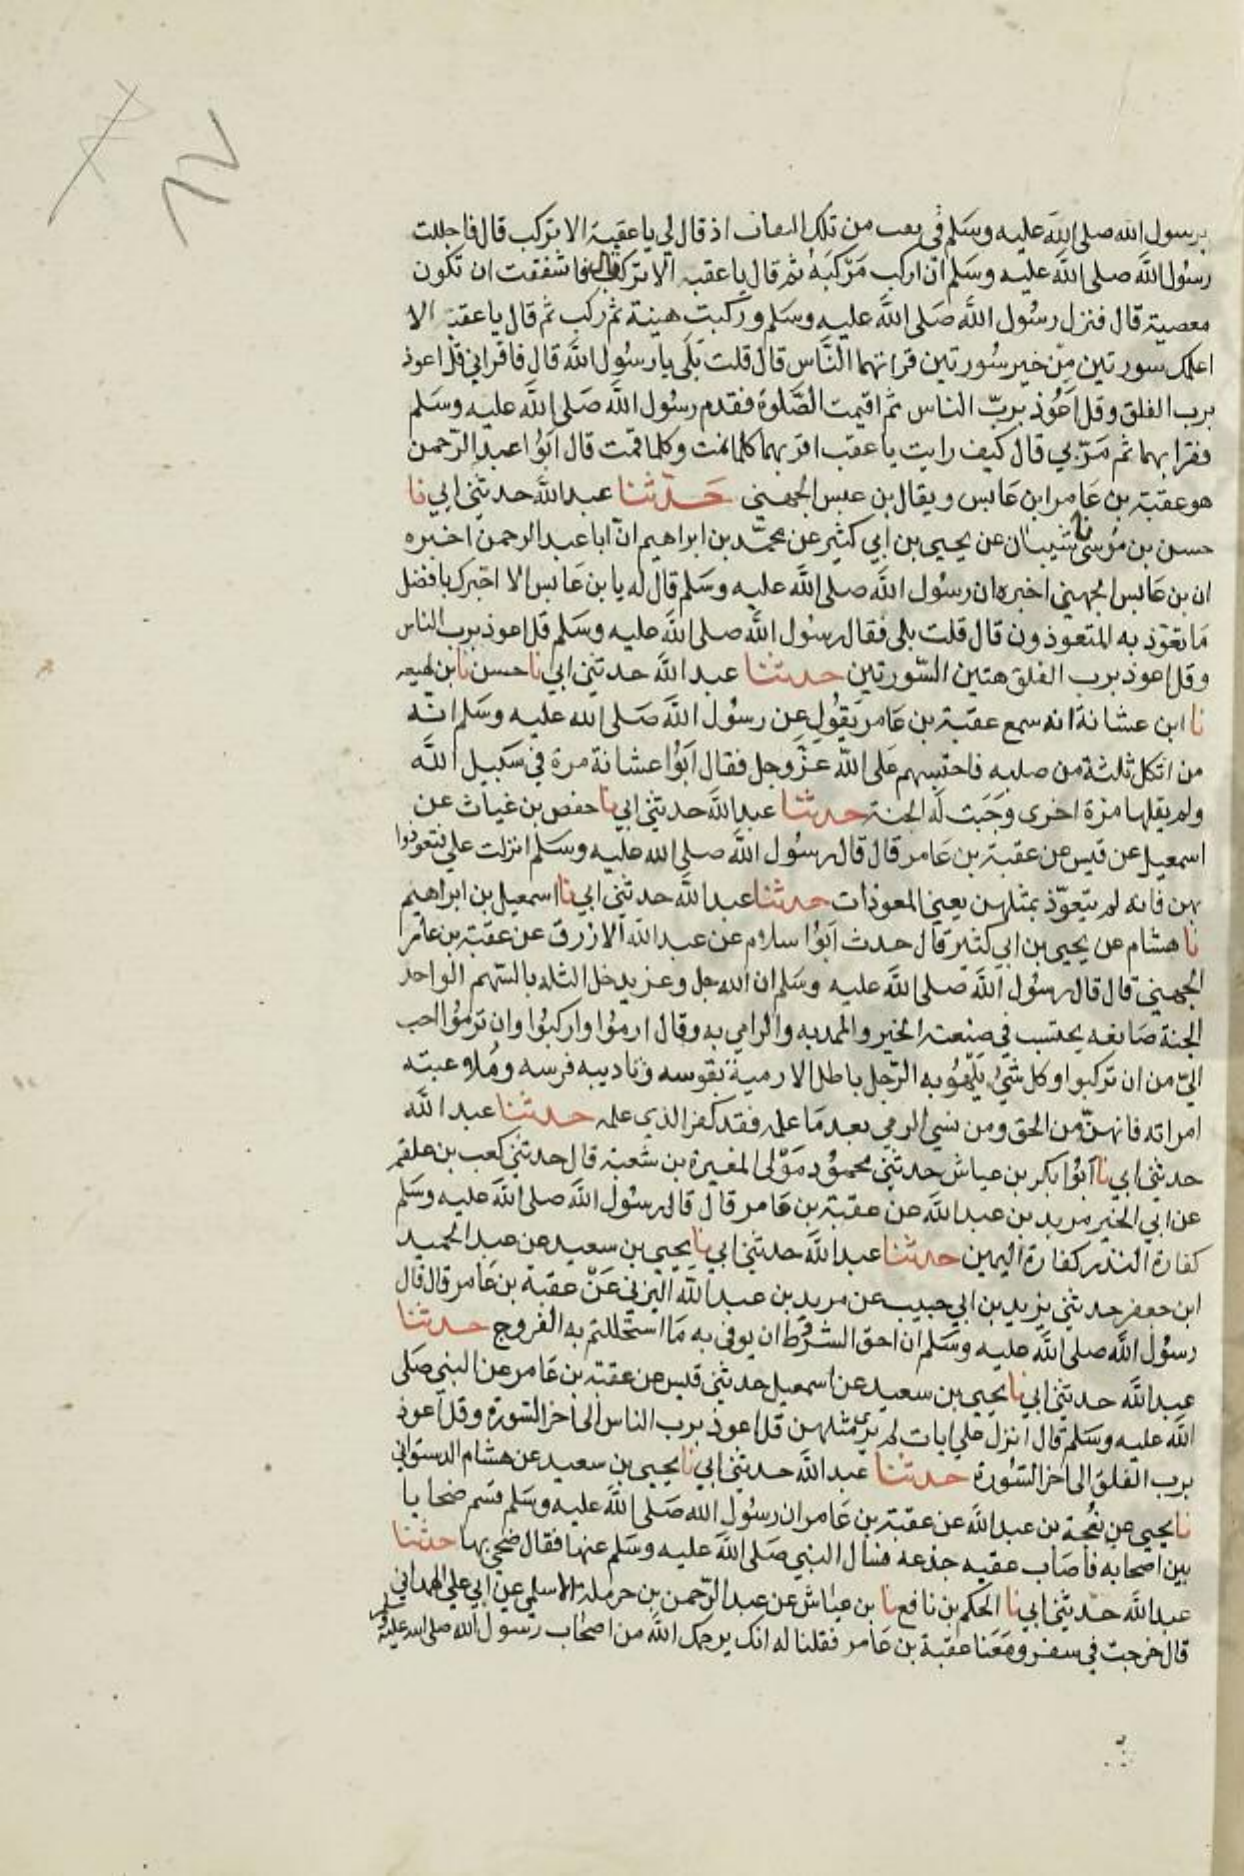 برسول الله صلى الله عليه وسلم في نعب من تلك النعاب اذ قال لي يا عقبة الا تركب قال فاجللت
رسول الله صلى الله عليه وسلم ان اركب مركبه ثم قال يا عقبه الا تركب قال فاشفقت ان تكون
معصية قال فنزل رسول الله صلى الله عليه وسلم وركبت هنية ثم ركب ثم قال يا عقبة الا
اعلمك سورتين من خير سورتين قرا بهما الناس قال قلت بلى يا رسول الله قال فاقراني قل اعوذ
برب الفلق وقل اعوذ برب الناس ثم اقيمت الصلوة فقدم رسول الله صلى الله عليه وسلم
فقرا بهما ثم مر بي قال كيف رايت يا عقب اقر بهما كلما نمت وكلما قمت قال ابوا عبد الرحمن
هو عقبة بن عامر ابن عابس ويقال بن عبس الجهني حدثنا عبد الله حدثني ابي نا
حسن بن موسى نا شيبان عن يحيى بن ابي كثير عن محمد بن ابراهيم ان ابا عبد الرحمن اخبره
ان بن عابس الجهني اخبره ان رسول الله صلى الله عليه وسلم قال له يا بن عابس الا اخبرك بافضل
ما تعوذ به المتعوذون قال قلت بلى فقال رسول الله صلى الله عليه وسلم قل اعوذ برب الناس
وقل اعوذ برب الفلق هتين السورتين حدثنا عبد الله حدثني ابي نا حسن نا بن لهيعه
نا ابن عشانة انه سمع عقبة بن عامر يقول عن رسول الله صلى الله عليه وسلم انه
من اثكل ثلثة من صلبه فاحتسبهم على الله عز وجل فقال ابوا عشانة مرة في سبيل الله
ولم يقلها مرة اخرى وجبت له الجنة حدثنا عبد الله حدثني ابي نا حفص بن غياث عن
اسمعيل عن قيس عن عقبة بن عامر قال قال رسول الله صلى الله عليه وسلم انزلت علي فتعوذوا
بهن فانه لم يتعوذ بمثلهن يعني المعوذات حدثنا عبد الله حدثني ابي نا اسمعيل بن ابراهيم
نا هشام عن يحيى بن ابي كثير قال حدث ابوا سلام عن عبد الله الازرق عن عقبة بن عامر
الجهني قال قال رسول الله صلى الله عليه وسلم ان الله جل وعز يدخل الثلثه بالسهم الواحد
الجنة صانعه يحتسب في صنعته الخير والممد به والرامي به وقال ارموا واركبوا وان ترموا احب
الي من ان تركبوا وكل شي يلهو به الرجل باطل الا رمية بقوسه وتاديبه فرسه وملاعبته
امراته فانهن من الحق ومن نسي الرمي بعد ما علمه فقد كفر الذي علمه حدثنا عبد الله
حدثني ابي نا ابوا بكر بن عياش حدثني محمود مولى المغيرة بن شعبة قال حدثني كعب بن علقمه
عن ابي الخير مريد بن عبد الله عن عقبة بن عامر قال قال رسول الله صلى الله عليه وسلم
كفارة النذر كفارة اليمين حدثنا عبد الله حدثني ابي نا يحيى بن سعيد عن عبد الحميد
ابن جعفر حدثني يزيد بن ابي حبيب عن مريد بن عبد الله اليزني عن عقبة بن عامر قال قال
رسول الله صلى الله عليه وسلم ان احق الشرط ان يوفى به ما استحللتم به الفروج حدثنا
عبد الله حدثني ابي نا يحيى بن سعيد عن اسمعيل حدثني قيس عن عقبة بن عامر عن النبي صلى
الله عليه وسلم قال انزل علي ايات لم ير مثلهن قل اعوذ برب الناس الى اخر السورة وقل اعوذ
برب الفلق الى اخر السورة حدثنا عبد الله حدثني ابي نا يحيى بن سعيد عن هشام الدستوائي
نا يحيى عن بعجة بن عبد الله عن عقبة بن عامر ان رسول الله صلى الله عليه وسلم قسم ضحايا
بين اصحابه فاصاب عقبه جذعه فسال النبي صلى الله عليه وسلم عنها فقال ضحي بها حدثنا
عبد الله حدثني ابي نا الحكم بن نافع نا بن عياش عن عبد الرحمن بن حرملة الاسلمي عن ابي علي الهمداني
قال خرجت في سفر ومعنا عقبة بن عامر فقلنا له انك يرحمك الله من اصحاب رسول الله صلى الله عليه وسلم